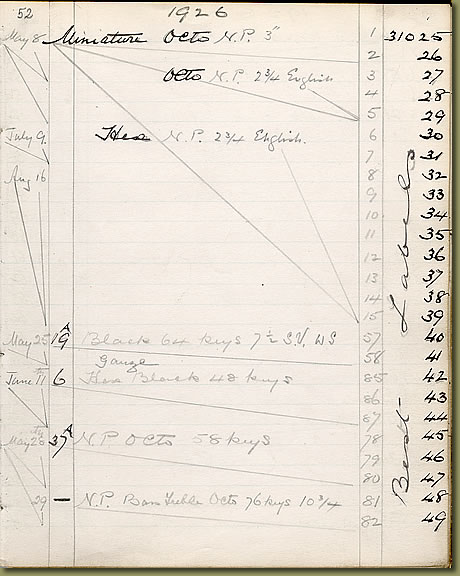 52 1926
May 8 Miniature Octo N.P. 3" 1 31025
2 26
Octo N.P. 2 3/4 English 3 27
4 28
5 29
July 9 Hex N.P. 2 3/4 English. 6 30
7 31
Aug 16 8 32
9 33
10 34
11 35
12 36
13 37
14 38
15 39
May 25 19A Black 64 keys 7 1/2 S.V. WS 57 40
Gauge 58 41
June 11th 6 Hex Black 48 keys 85 42
86 43
87 44
May 37A N.P. Octo 58 keys 78 45
79 46
80 47
29 — N.P. Treble Octo 76 keys 10 3/4 81 48
82 49
Best Labels